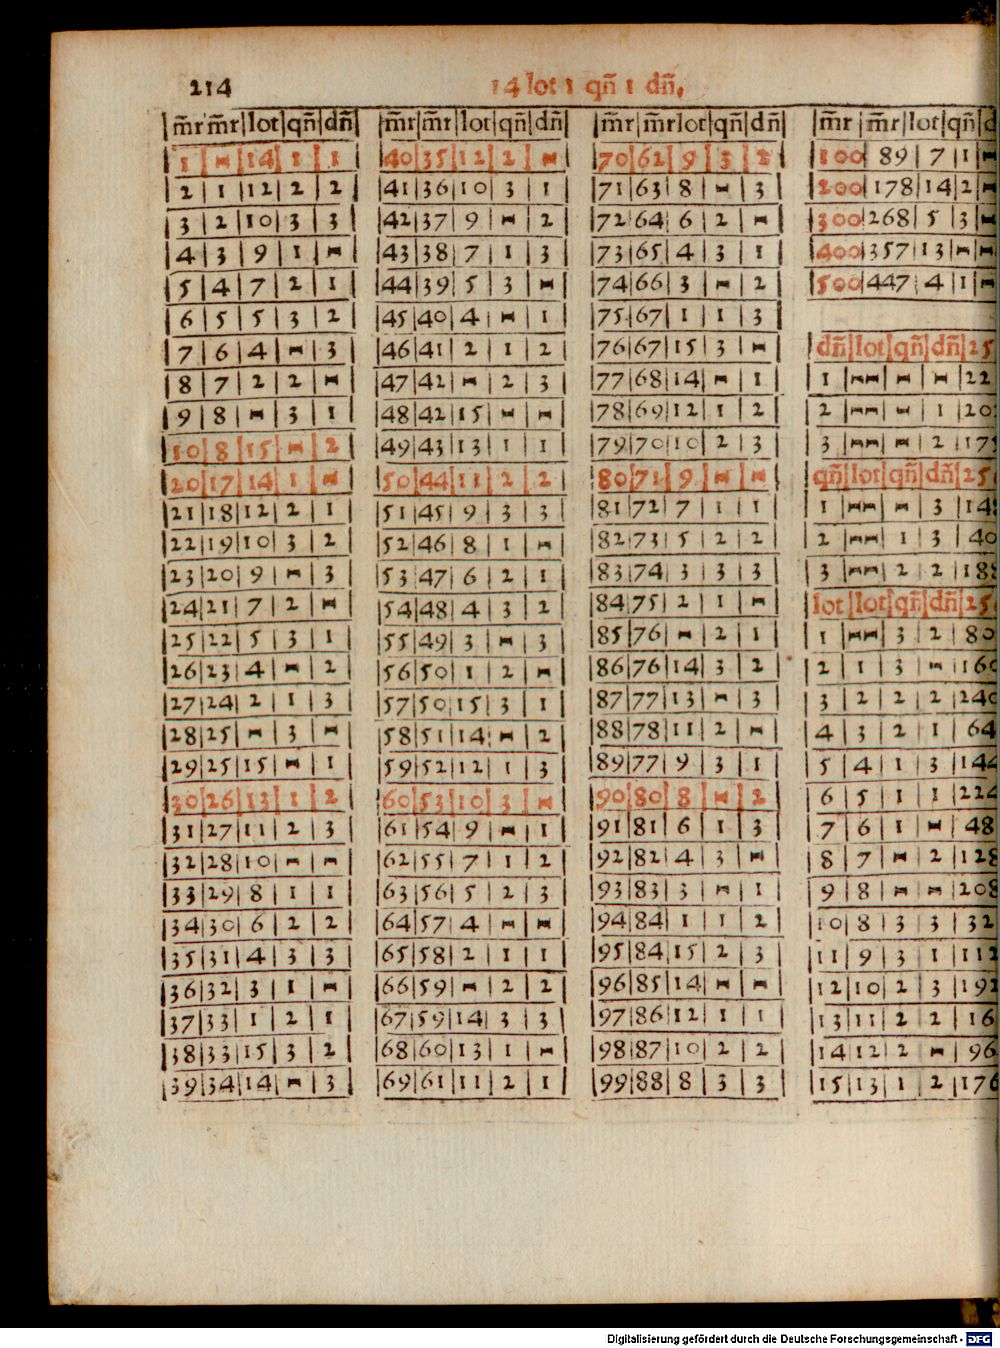 214
14 lot 1 qñ 1 dñ.
m̄r m̄r lot qñ dñ
1 - 14 1 1
2 1 12 2 2
3 2 10 3 3
4 3 9 1 -
5 4 7 2 1
6 5 5 3 2
7 6 4 - 3
8 7 2 2 -
9 8 - 3 1
10 8 15 - 2
20 17 14 1 -
21 18 12 2 1
22 19 10 3 2
23 20 9 - 3
24 21 7 2 -
25 22 5 3 1
26 23 4 - 2
27 24 2 1 3
28 25 - 3 -
29 25 15 - 1
30 26 13 1 2
31 27 11 2 3
32 28 10 - -
33 29 8 1 1
34 30 6 2 2
35 31 4 3 3
36 32 3 1 -
37 33 1 2 1
38 33 15 3 2
39 34 14 - 3
m̄r m̄r lot qñ dñ
40 35 12 2 -
41 36 10 3 1
42 37 9 - 2
43 38 7 1 3
44 39 5 3 -
45 40 4 - 1
46 41 2 1 2
47 42 - 2 3
48 42 15 - -
49 43 13 1 1
50 44 11 2 2
51 45 9 3 3
52 46 8 1 -
53 47 6 2 1
54 48 4 3 2
55 49 3 - 3
56 50 1 2 -
57 50 15 3 1
58 51 14 - 2
59 52 12 1 3
60 53 10 3 -
61 54 9 - 1
62 55 7 1 2
63 56 5 2 3
64 57 4 - -
65 58 2 1 1
66 59 - 2 2
67 59 14 3 3
68 60 13 1 -
69 61 11 2 1
m̄r m̄r lot qñ dñ
70 62 9 3 2
71 63 8 - 3
72 64 6 2 -
73 65 4 3 1
74 66 3 - 2
75 67 1 1 3
76 67 15 3 -
77 68 14 - 1
78 69 12 1 2
79 70 10 2 3
80 71 9 - -
81 72 7 1 1
82 73 5 2 2
83 74 3 3 3
84 75 2 1 -
85 76 - 2 1
86 76 14 3 2
87 77 13 - 3
88 78 11 2 -
89 77 9 3 1
90 80 8 - 2
91 81 6 1 3
92 82 4 3 -
93 83 3 - 1
94 84 1 1 2
95 84 15 2 3
96 85 14 - -
97 86 12 1 1
98 87 10 2 2
99 88 8 3 3
m̄r m̄r lot qñ
100 89 7 1 -
200 178 14 2 -
300 268 5 3 -
400 357 13 - -
500 447 4 1 -
dñ lot qñ dñ 25
1 -- - - 22
2 -- - 1 20
3 -- - 2 17
qñ lot qñ dñ 25
1 -- - 3 14
2 -- 1 3 40
3 -- 2 2 18
lot lot qñ dñ 25
1 -- 3 2 80
2 1 3 - 160
3 2 2 2 240
4 3 2 1 64
5 4 1 3 144
6 5 1 1 224
7 6 1 - 48
8 7 - 2 128
9 8 - - 208
10 8 3 3 32
11 9 3 1 112
12 10 2 3 192
13 11 2 2 16
14 12 2 - 96
15 13 1 2 176
Digitalisierung gefördert durch die Deutsche Forschungsgemeinschaft - DFG